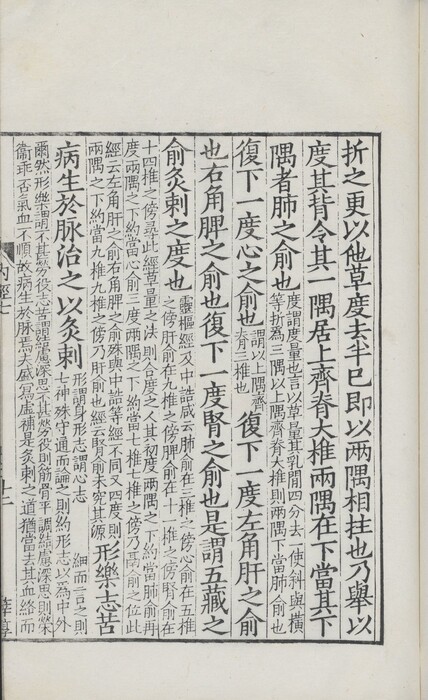 折之更以他草度去半已即以兩隅相拄也乃舉以
度其背令其一隅居上齊脊大椎兩隅在下當其下
隅者肺之俞也
度謂度量也言以草量其乳間四分去一使斜與橫
等折為三隅以上隅齊脊大椎則兩隅下當肺俞也
復下一度心之俞也
謂以上隅齊
脊三椎也
復下一度左角肝之俞
也右角脾之俞也復下一度腎之俞也是謂五藏之
俞灸刺之度也
靈樞經及中誥咸云肺俞在三椎之傍心俞在五椎
之傍肝俞在九椎之傍脾俞在十一椎之傍腎俞在
十四椎之傍尋此經草量之法則合度之人其初度兩隅之下約當肺俞再
度兩隅之下約當心俞三度兩隅之下約當七椎七椎之傍乃鬲俞之位此
經云左角肝之俞右角脾之俞殊與中誥等經不同又四度則
兩隅之下約當九椎九椎之傍乃肝俞也經云腎俞未究其源
形樂志苦
病生於脉治之以灸刺
形謂身形志謂心志細而言之則
七神殊守通而論之則約形志以為中外
爾然形樂謂不甚勞役志苦謂結慮深思不甚勞役則筋骨平調結慮深思則榮
衞乖否氣血不順故病生於脉焉夫盛寫虛補是灸刺之道猶當去其血絡而
内經七